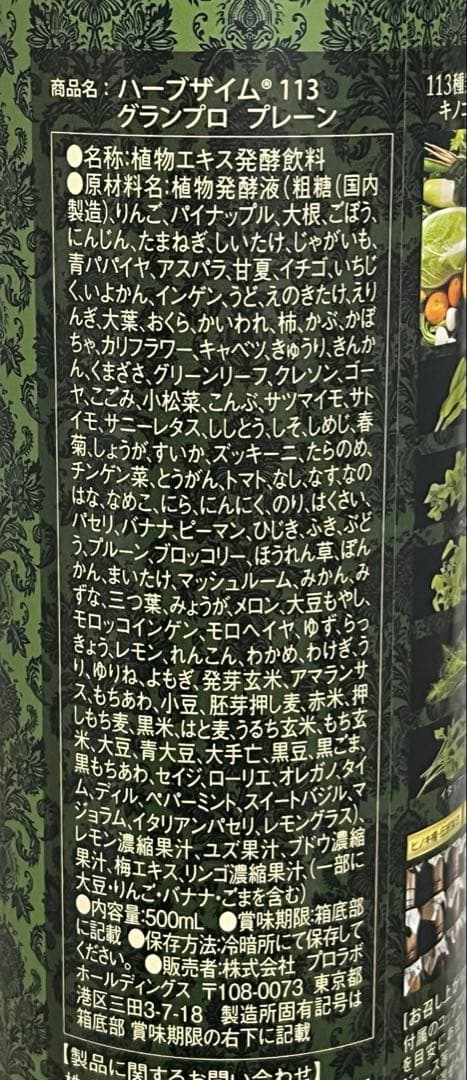 商品名：ハーブザイム® 113
グランプロ プレーン
●名称:植物エキス発酵飲料
●原材料名:植物発酵液(粗糖(国内
製造)、りんご、パイナップル、大根、ごぼう、
にんじん、たまねぎ、しいたけ、じゃがいも、
青パパイヤ、アスパラ、甘夏、イチゴ、いちじ
く、いよかん、インゲン、うど、えのきたけ、えり
んぎ、大葉、おくら、かいわれ、柿、かぶ、かぼ
ちゃ、カリフラワー、キャベツ、きゅうり、きんか
ん、くまざさ、グリーンリーフ、クレソン、ゴー
ヤ、こごみ、小松菜、こんぶ、サツマイモ、サト
イモ、サニーレタス、ししとう、しそ、しめじ、春
菊、しょうが、すいか、ズッキーニ、たらのめ、
チンゲン菜、とうがん、トマト、なし、なす、なの
はな、なめこ、にら、にんにく、のり、はくさい、
パセリ、バナナ、ピーマン、ひじき、ふき、ぶど
う、プルーン、ブロッコリー、ほうれん草、ぽん
かん、まいたけ、マッシュルーム、みかん、み
ずな、三つ葉、みょうが、メロン、大豆もやし、
モロッコインゲン、モロヘイヤ、ゆず、らっ
きょう、レモン、れんこん、わかめ、わけぎ、う
り、ゆりね、よもぎ、発芽玄米、アマランサ
ス、もちあわ、小豆、胚芽押し麦、赤米、押
しもち麦、黒米、はと麦、うるち玄米、もち玄
米、大豆、青大豆、大手亡、黒豆、黒ごま、
黒もちあわ、セイジ、ローリエ、オレガノ、タイ
ム、ディル、ペパーミント、スイートバジル、マ
ジョラム、イタリアンパセリ、レモングラス)、
レモン濃縮果汁、ユズ果汁、ブドウ濃縮
果汁、梅エキス、リンゴ濃縮果汁、(一部に
大豆・りんご・バナナ・ごまを含む)
●内容量:500mL ●賞味期限:箱底部
に記載 ●保存方法:冷暗所にて保存して
ください。 ●販売者:株式会社 プロラボ
ホールディングス 〒108-0073 東京都
港区三田3-7-18 製造所固有記号は
箱底部 賞味期限の右下に記載
【製品に関するお問い合わせ】
113種
キノコ
【お召し上が
付属のコッ
を目安にお